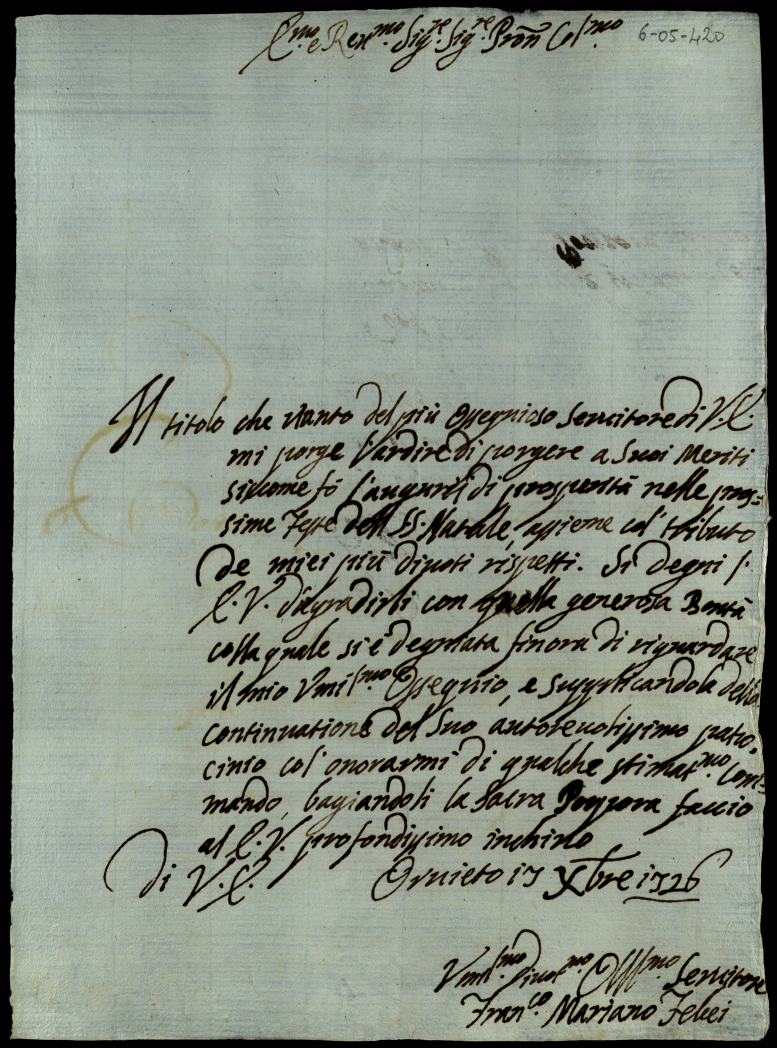 E.mo e Reu.mo Sig.re Sig.re Pron Col.mo
6-05-420
Il titolo che uanto del più Ossequioso Seruitore di V.E.
mi porge l'ardire di porgere a Suoi Meriti
siccome fò l'augurij di prosperità nelle pros=
sime Feste dell SS. Natale, assieme col' tributo
de miei più diuoti rispetti. Si degni l'
E.V. di gradirli con quella generosa Bontà
colla quale si è degnata finora di riguardare
il mio Vmil.mo Ossequio, e supplicandola della
continuatione del Suo autoreuolissimo patro=
cinio col' onorarmi di qualche stimat.mo Com=
mando, bagiandoli la Sacra Porpora faccio
al E.V. profondissimo inchino
di V.E. Oruieto 17 Xbre 1726
Vmil.mo Diuot.mo Oss.mo Seruitore
Fran.co Mariano Febei